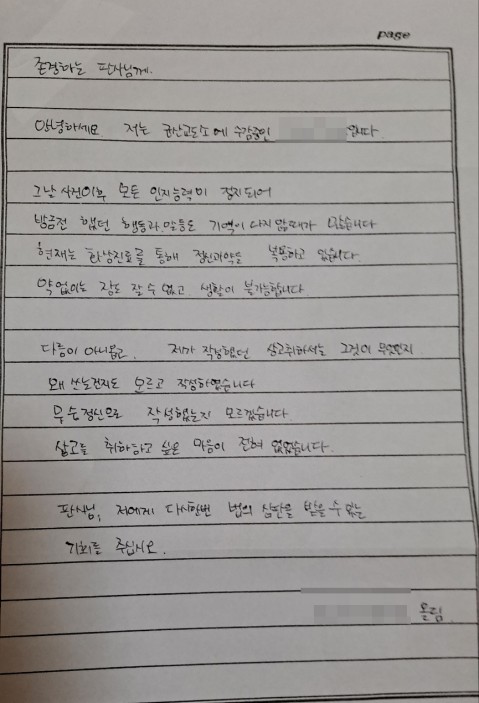 page
존경하는 판사님께.
안녕하세요 저는 군산교도소에 수감중인 입니다.
그날 사건이후 모든 인지능력이 정지되어
방금전 했던 행동과 말들도 기억이 나지 않을때가 많습니다
현재는 화상진료를 통해 정신과약을 복용하고 있습니다.
약 없이는 잠도 잘 수 없고 생활이 불가능합니다
다름이 아니옵고. 제가 작성했던 상고취하서는 그것이 무엇인지
왜 쓰는건지도 모르고 작성하였습니다
무슨정신으로 작성했는지 모르겠습니다.
상고를 취하하고 싶은 마음이 전혀 없었습니다.
판사님, 저에게 다시한번 법의 심판을 받을 수 있는
기회를 주십시오.
올림